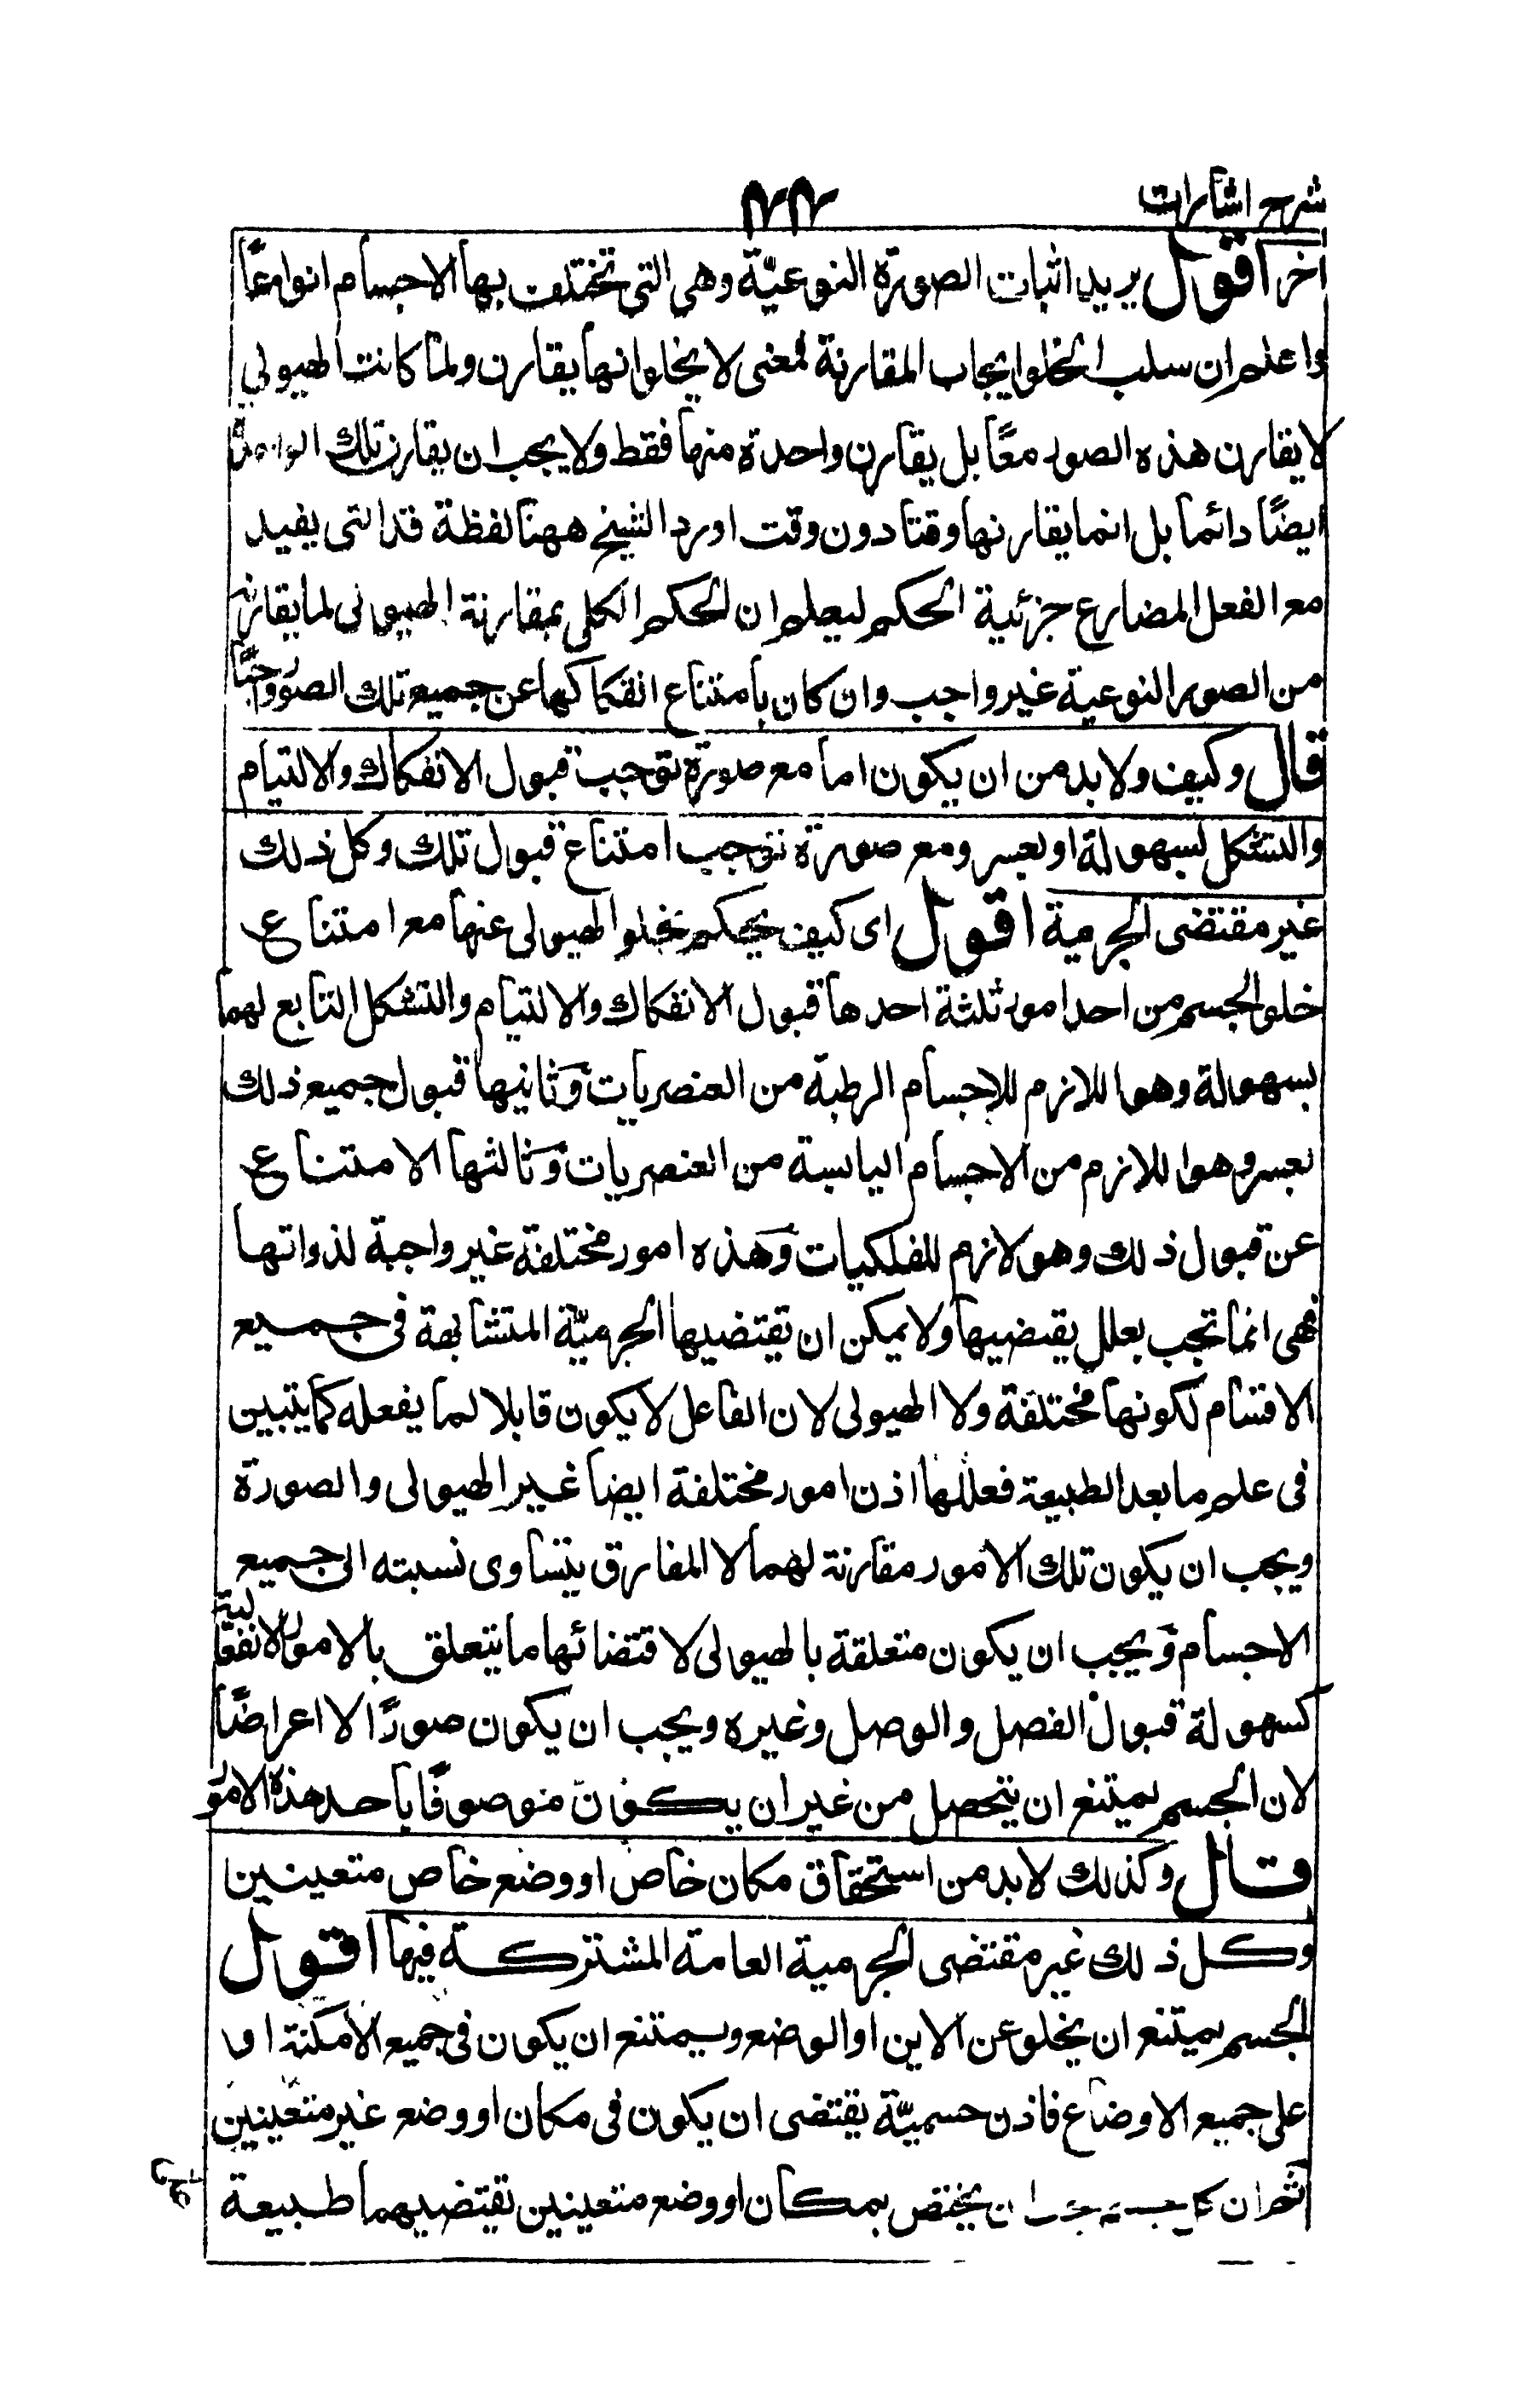 شرح اشارات
٢٢
اخر اقول يريد اثبات الصورة النوعيّة وهي التي تختلف بها الاجسام انواعًا
واعلم ان سلب الخلو ايجاب المقارنة فمعنى لا يخلو انها يقارن ولما كانت الهيولي
لا يقارن هذه الصور معًا بل يقارن واحدة منها فقط ولا يجب ان يقارن تلك الواحدة
ايضًا دائما بل انما يقارنها وقتا دون وقت اورد الشيخ ههنا لفظة قد التى يفيد
مع الفعل المضارع جزئية الحكم ليعلم ان الحكم الكلى بمقارنة الهيولى لما يقارنه
من الصور النوعية غير واجب وان كان بامتناع انفكاكها عن جميع تلك الصور واجبًا
قال وكيف ولا بد من ان يكون اما مع صورة توجب قبول الانفكاك والالتيام
والتشكل بسهولة او بعسر ومع صورة توجب امتناع قبول تلك وكل ذلك
غير مقتضى الجرمية اقول اى كيف يحكم بخلو الهيولى عنها مع امتناع
خلو الجسم من احد امور ثلثة احدها قبول الانفكاك والالتيام والتشكل التابع لهما
بسهولة وهو اللازم للاجسام الرطبة من العنصريات وثانيها قبول جميع ذلك
بعسر وهو اللازم من الاجسام اليابسة من العنصريات وثالثها الامتناع
عن قبول ذلك وهو لازم للفلكيات وهذه امور مختلفة غير واجبة لذواتها
فهى انما تجب بعلل يقتضيها ولا يمكن ان يقتضيها الجرميّة المتشابهة فى جميع
الاقسام لكونها مختلفة ولا الهيولى لان الفاعل لا يكون قابلا لما يفعله كما يتبين
فى علم ما بعد الطبيعة فعللها اذن امور مختلفة ايضا غير الهيولى والصورة
ويجب ان يكون تلك الامور مقارنة لهما لا المفارق يتساوى نسبته الى جميع
الاجسام ويجب ان يكون متعلقة بالهيولى لاقتضائها ما يتعلق بالامور الانفعالية
كسهولة قبول الفصل والوصل وغيره ويجب ان يكون صورًا لا اعراضًا
لان الجسم يمتنع ان يتحصل من غير ان يكون موصوفًا باحد هذه الامور
قال وكذلك لا بد من استحقاق مكان خاص او وضع خاص متعينين
وكل ذلك غير مقتضى الجرمية العامة المشتركة فيها اقول
الجسم يمتنع ان يخلو عن الاين او الوضع ويمتنع ان يكون فى جميع الامكنة او
على جميع الاوضاع فاذن جسميّة يقتضى ان يكون فى مكان او وضع غير متعينين
ثم ان كل ان يختص بمكان او وضع متعينين يقتضيهما طبيعة